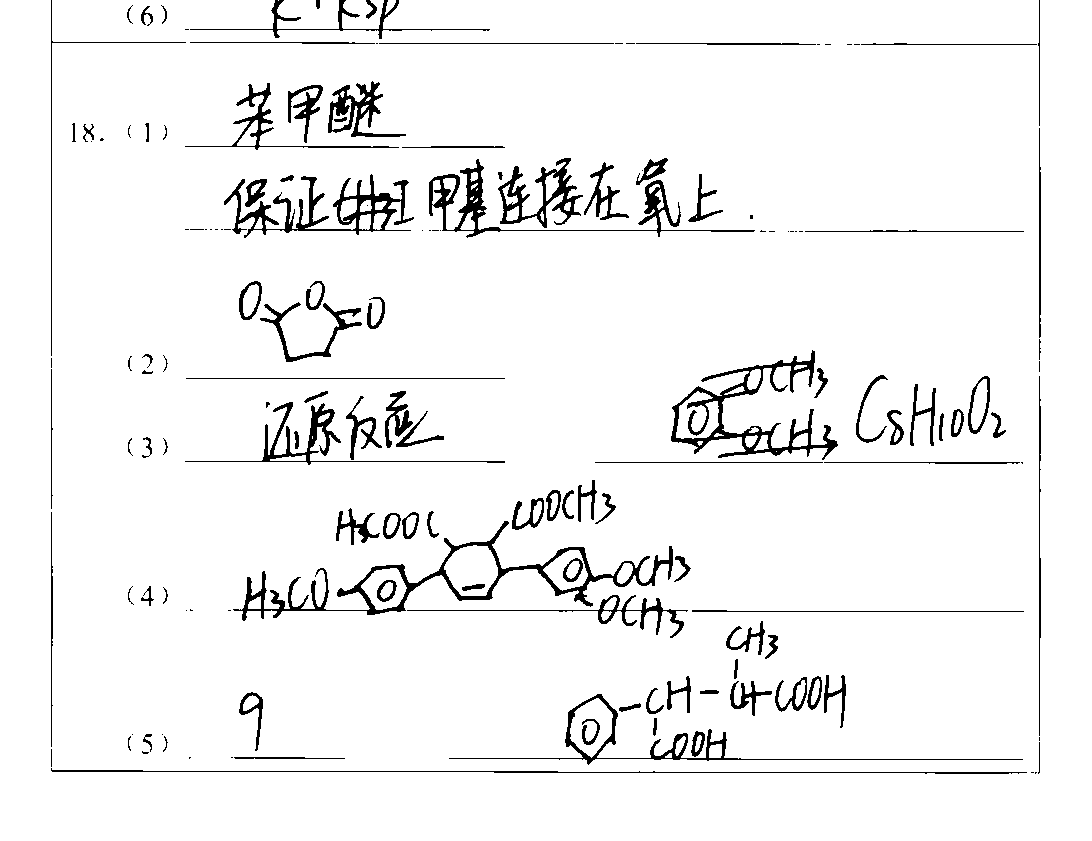 (6) K + Ksp
18. (1) 苯甲醚
保证CH3I 甲基连接在氧上.
O O O
(2)
OCH3
(3) 还原反应 OCH3 C8H10O2
H3COOC COOCH3
(4) H3CO OCH3
OCH3
CH3
9 CH-CH-COOH
(5) COOH